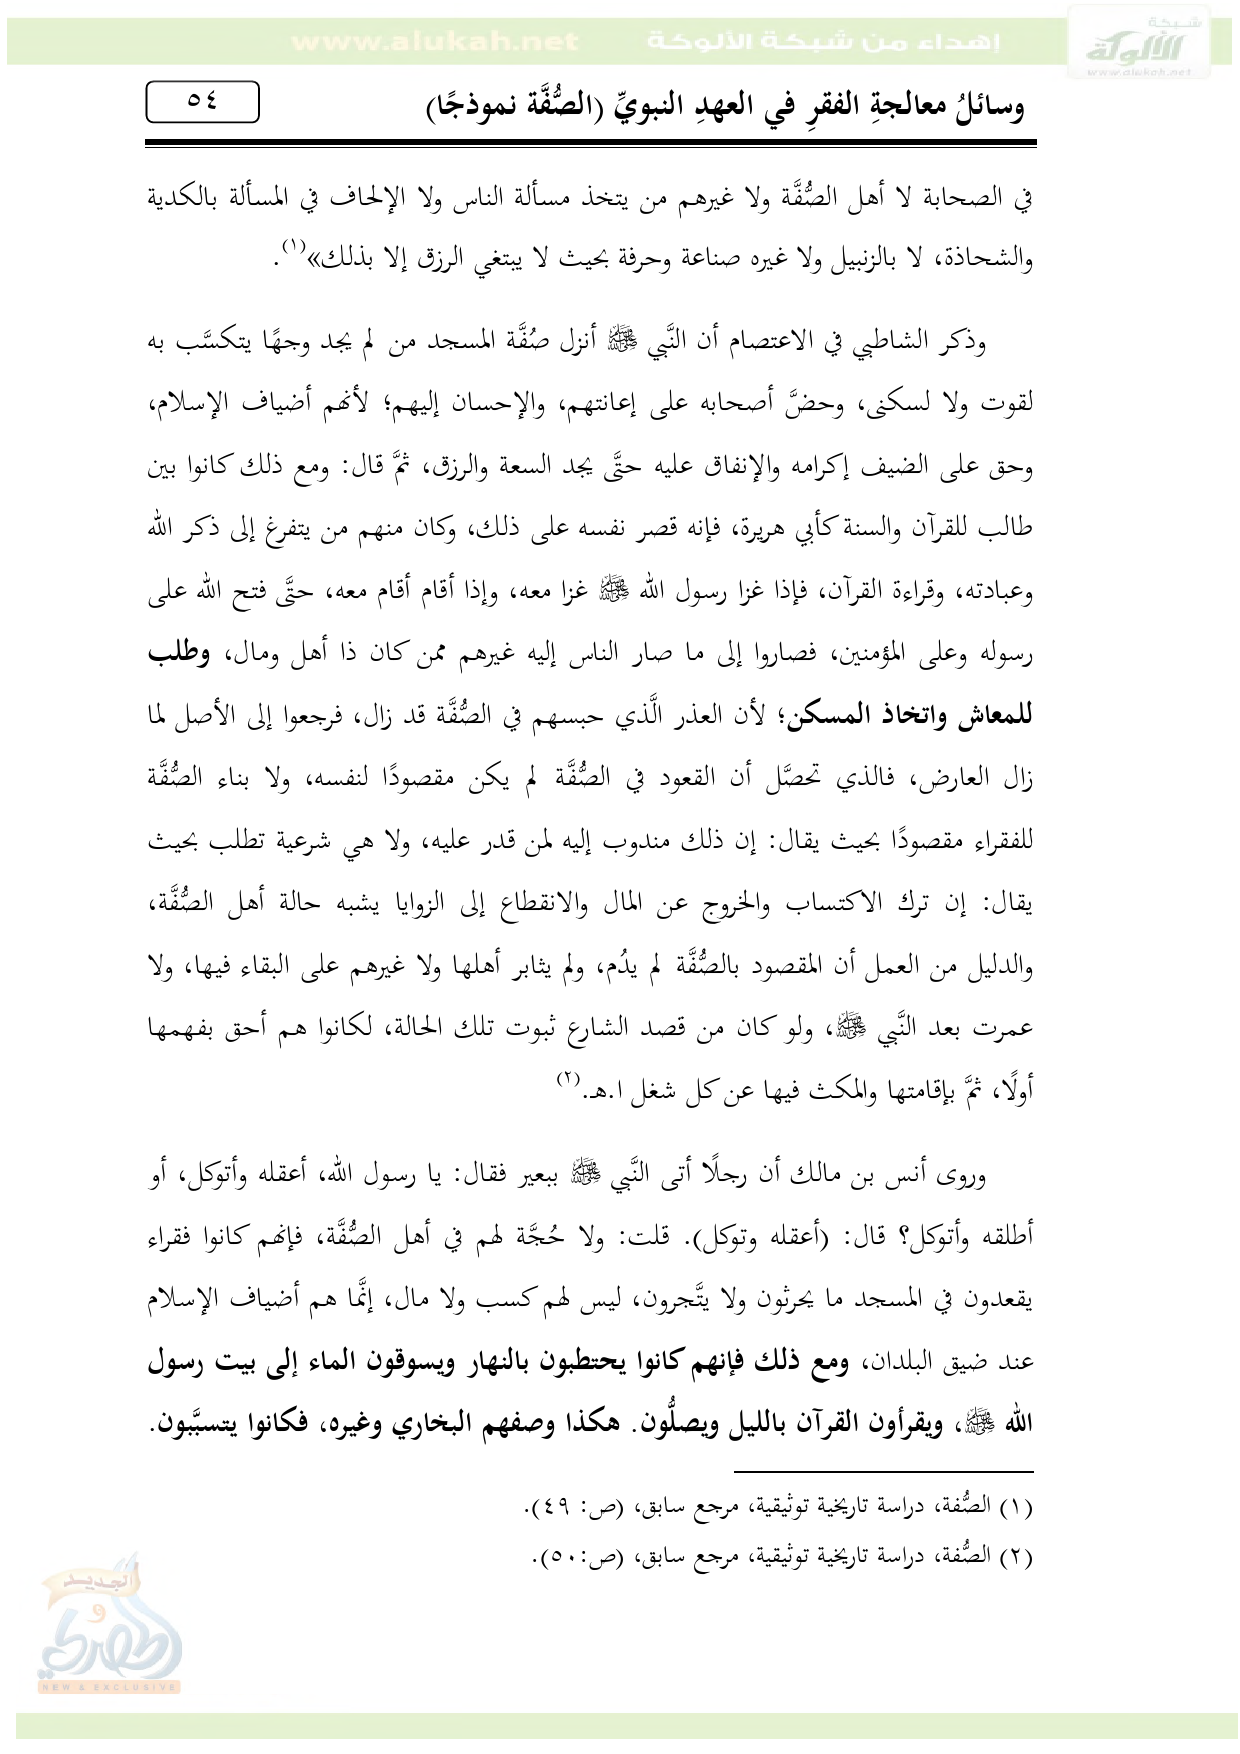 www.alukah.net إهداء من شبكة الألوكة
شبكة
الألوكة
www.alukah.net
وسائلُ معالجةِ الفقرِ في العهدِ النبويِّ (الصُّفَّة نموذجًا) ٥٤
في الصحابة لا أهل الصُّفَّة ولا غيرهم من يتخذ مسألة الناس ولا الإلحاف في المسألة بالكدية
والشحاذة، لا بالزنبيل ولا غيره صناعة وحرفة بحيث لا يبتغي الرزق إلا بذلك»(١).
وذكر الشاطبي في الاعتصام أن النَّبي ﷺ أنزل صُفَّة المسجد من لم يجد وجهًا يتكسَّب به
لقوت ولا لسكنى، وحضَّ أصحابه على إعانتهم، والإحسان إليهم؛ لأنهم أضياف الإسلام،
وحق على الضيف إكرامه والإنفاق عليه حتَّى يجد السعة والرزق، ثمَّ قال: ومع ذلك كانوا بين
طالب للقرآن والسنة كأبي هريرة، فإنه قصر نفسه على ذلك، وكان منهم من يتفرغ إلى ذكر الله
وعبادته، وقراءة القرآن، فإذا غزا رسول الله ﷺ غزا معه، وإذا أقام أقام معه، حتَّى فتح الله على
رسوله وعلى المؤمنين، فصاروا إلى ما صار الناس إليه غيرهم ممن كان ذا أهل ومال، وطلب
للمعاش واتخاذ المسكن؛ لأن العذر الَّذي حبسهم في الصُّفَّة قد زال، فرجعوا إلى الأصل لما
زال العارض، فالذي تحصَّل أن القعود في الصُّفَّة لم يكن مقصودًا لنفسه، ولا بناء الصُّفَّة
للفقراء مقصودًا بحيث يقال: إن ذلك مندوب إليه لمن قدر عليه، ولا هي شرعية تطلب بحيث
يقال: إن ترك الاكتساب والخروج عن المال والانقطاع إلى الزوايا يشبه حالة أهل الصُّفَّة،
والدليل من العمل أن المقصود بالصُّفَّة لم يدُم، ولم يثابر أهلها ولا غيرهم على البقاء فيها، ولا
عمرت بعد النَّبي ﷺ، ولو كان من قصد الشارع ثبوت تلك الحالة، لكانوا هم أحق بفهمها
أولًا، ثمَّ بإقامتها والمكث فيها عن كل شغل ا.هـ.(٢)
وروى أنس بن مالك أن رجلًا أتى النَّبي ﷺ ببعير فقال: يا رسول الله، أعقله وأتوكل، أو
أطلقه وأتوكل؟ قال: (أعقله وتوكل). قلت: ولا حُجَّة لهم في أهل الصُّفَّة، فإنهم كانوا فقراء
يقعدون في المسجد ما يحرثون ولا يتَّجرون، ليس لهم كسب ولا مال، إنَّما هم أضياف الإسلام
عند ضيق البلدان، ومع ذلك فإنهم كانوا يحتطبون بالنهار ويسوقون الماء إلى بيت رسول
الله ﷺ، ويقرأون القرآن بالليل ويصلُّون. هكذا وصفهم البخاري وغيره، فكانوا يتسبَّبون.
(١) الصُّفة، دراسة تاريخية توثيقية، مرجع سابق، (ص: ٤٩).
(٢) الصُّفة، دراسة تاريخية توثيقية، مرجع سابق، (ص:٥٠).
الجديد
و
حصري
NEW & EXCLUSIVE